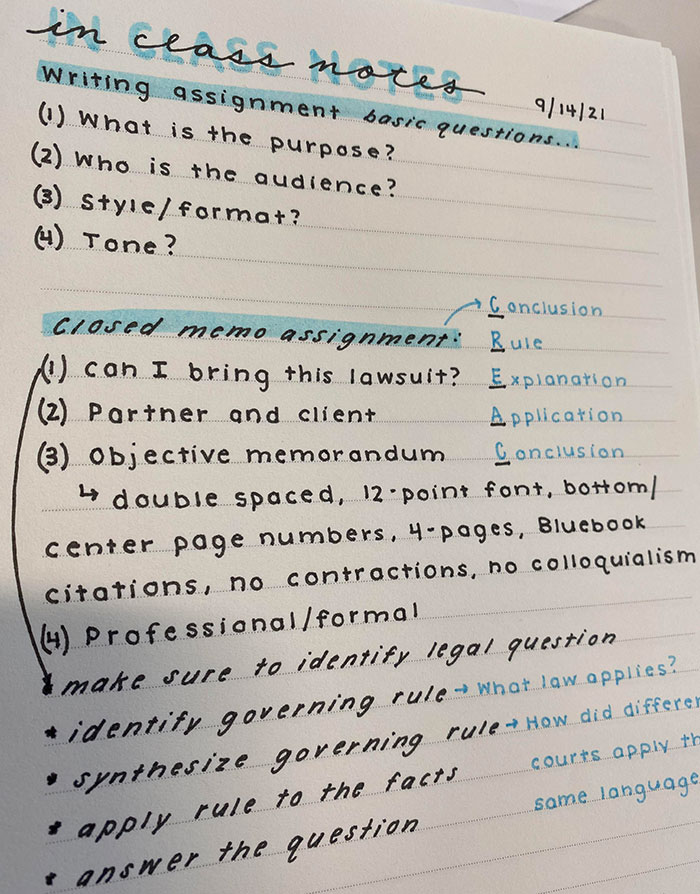 in class notes
IN CLASS NOTES
9/14/21
Writing assignment basic questions...
(1) What is the purpose?
(2) Who is the audience?
(3) Style/format?
(4) Tone?
Closed memo assignment:
Conclusion
Rule
Explanation
Application
Conclusion
(1) Can I bring this lawsuit?
(2) Partner and client
(3) Objective memorandum
↳ double spaced, 12-point font, bottom/
center page numbers, 4-pages, Bluebook
citations, no contractions, no colloquialism
(4) Professional/formal
* make sure to identify legal question
* identify governing rule → What law applies?
* synthesize governing rule → How did differen
courts apply th
same language
* apply rule to the facts
* answer the question